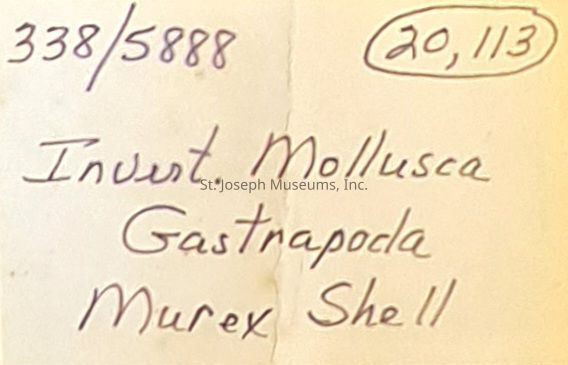 338/5888 20,113
Invert. Mollusca
St. Joseph Museums, Inc.
Gastrapoda
Murex Shell